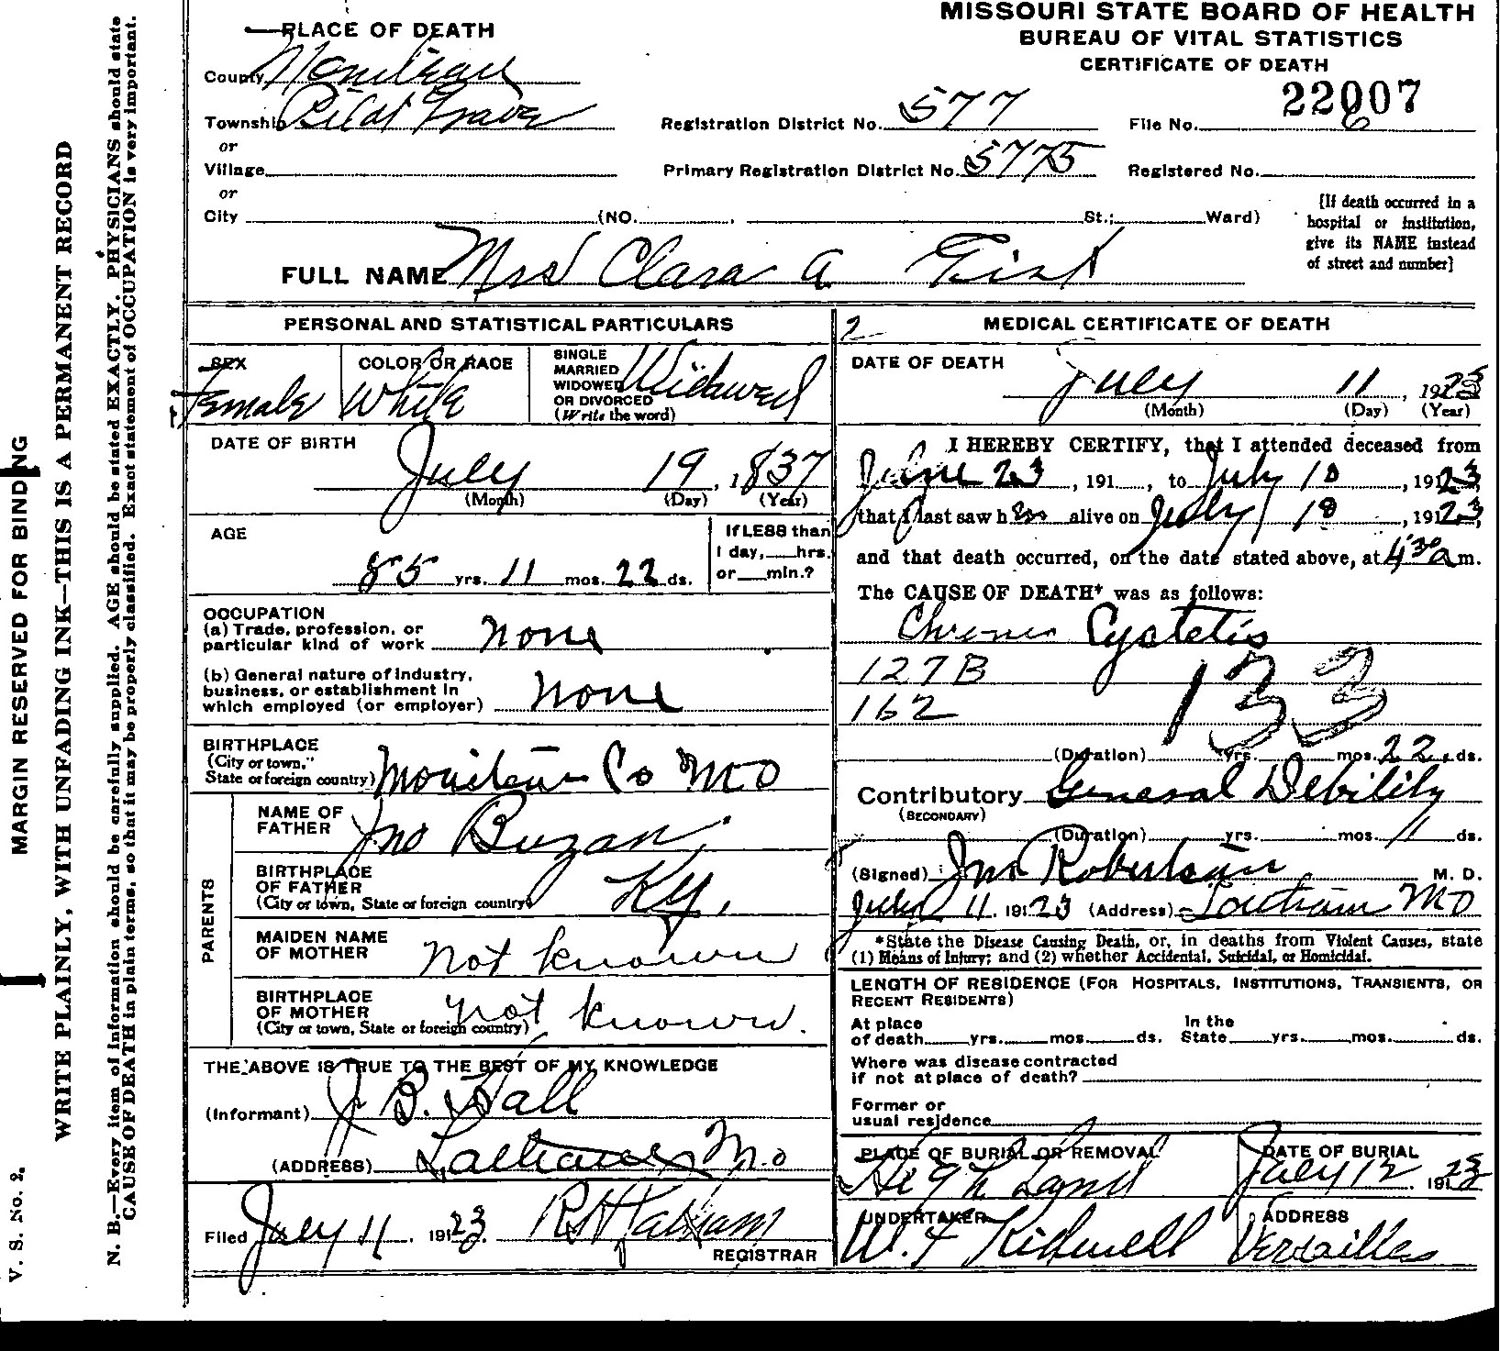 MISSOURI STATE BOARD OF HEALTH
BUREAU OF VITAL STATISTICS
CERTIFICATE OF DEATH
PLACE OF DEATH
County Moniteau
Township Pilot Grove
Registration District No. 577
File No. 22007
6
or
Village
Primary Registration District No. 5775
Registered No.
or
City (NO. , St.; Ward)
[If death occurred in a
hospital or institution,
give its NAME instead
of street and number]
FULL NAME Mrs Clara A
PERSONAL AND STATISTICAL PARTICULARS
SEX
Female
COLOR OR RACE
White
SINGLE
MARRIED
WIDOWED
OR DIVORCED
(Write the word)
Widowed
DATE OF BIRTH
July 19, 1837
(Month) (Day) (Year)
AGE
85 yrs. 11 mos. 22 ds.
If LESS than
1 day, hrs.
or min.?
OCCUPATION
(a) Trade, profession, or
particular kind of work none
(b) General nature of industry,
business, or establishment in
which employed (or employer) none
BIRTHPLACE
(City or town,
State or foreign country) Moniteau Co MO
PARENTS
NAME OF
FATHER Jno Buzan
BIRTHPLACE
OF FATHER
(City or town, State or foreign country) Ky.
MAIDEN NAME
OF MOTHER not known
BIRTHPLACE
OF MOTHER
(City or town, State or foreign country) not known.
THE ABOVE IS TRUE TO THE BEST OF MY KNOWLEDGE
(Informant) J. B. Hall
(ADDRESS) Latham Mo
Filed July 11, 1923. R H Latham
REGISTRAR
2
MEDICAL CERTIFICATE OF DEATH
DATE OF DEATH
July 11, 1923
(Month) (Day) (Year)
I HEREBY CERTIFY, that I attended deceased from
June 23, 191 , to July 10, 1923,
that I last saw h er alive on July 10, 1923,
and that death occurred, on the date stated above, at 4 30 a m.
The CAUSE OF DEATH* was as follows:
Chronic Cystetis
127B
162
133
(Duration) yrs. mos. 22 ds.
Contributory General Debility
(SECONDARY)
(Duration) yrs. mos. 11 ds.
(Signed) Jno Robertson M. D.
July 11, 1923 (Address) Latham MO
*State the Disease Causing Death, or, in deaths from Violent Causes, state
(1) Means of Injury; and (2) whether Accidental, Suicidal, or Homicidal.
LENGTH OF RESIDENCE (FOR HOSPITALS, INSTITUTIONS, TRANSIENTS, OR
RECENT RESIDENTS)
At place
of death yrs. mos. ds.
In the
State yrs. mos. ds.
Where was disease contracted
if not at place of death?
Former or
usual residence
PLACE OF BURIAL OR REMOVAL
DATE OF BURIAL
July 12, 1923
UNDERTAKER
W. F Kidwell
ADDRESS
Versailles
MARGIN RESERVED FOR BINDING
WRITE PLAINLY, WITH UNFADING INK—THIS IS A PERMANENT RECORD
N. B.—Every item of information should be carefully supplied. AGE should be stated EXACTLY. PHYSICIANS should state
CAUSE OF DEATH in plain terms, so that it may be properly classified. Exact statement of OCCUPATION is very important.
V. S. No. 2.